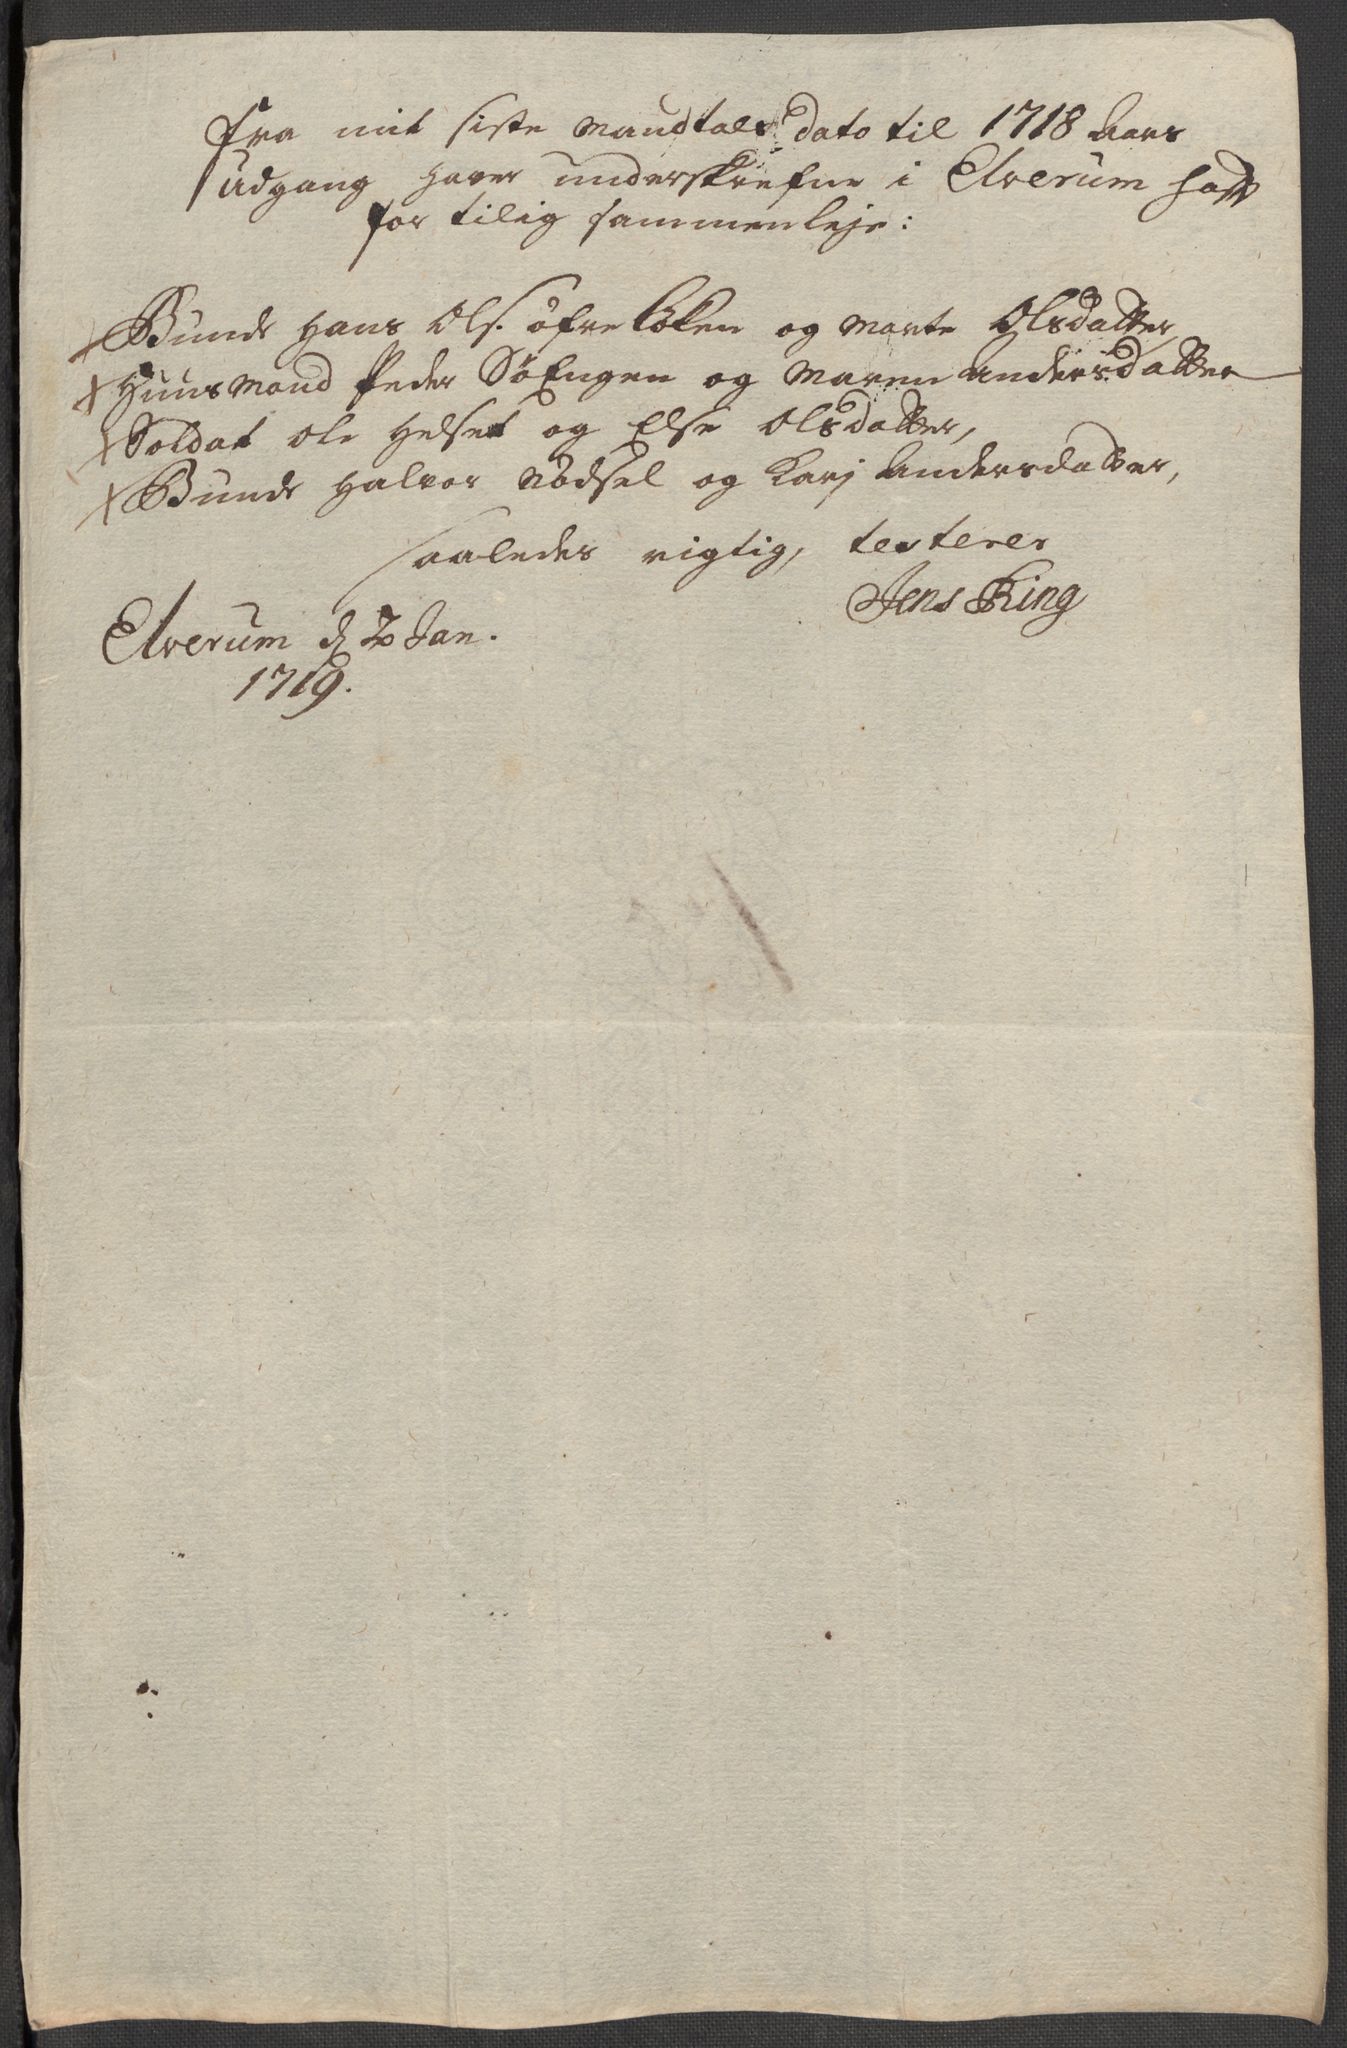 fra mit siste Mandtals dato til 1718 Aars
udgang haver underskrefne i Elverum hafft
for tilig sammenleje:
x Bunde Hans Ols. öfre Löken og Marte Olsdatter,
x Huusmand Peder Söengen og Maren Andersdatter
x Soldat Ole Helset og Else Olsdatter,
x Bunde Halvor Nödsel og Karj Andersdatter,
saaledes rigtig, testerer
Jens Ring
Elverum d 2 Jan.
1719.